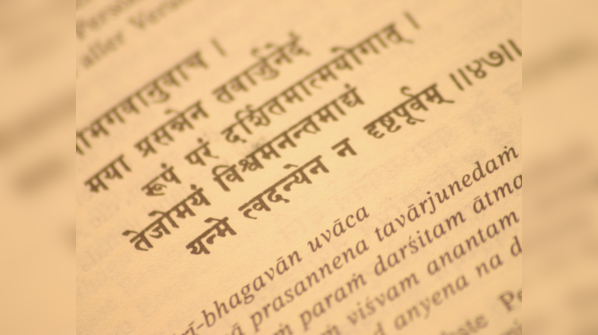 aller
।
मया प्रसन्नेन तवार्जुनेदं
रूपं परं दर्शितमात्मयोगात् ।
तेजोमयं विश्वमनन्तमाद्यं
यन्मे त्वदन्येन न दृष्टपूर्वम् ॥४७॥
-bhagavān uvāca
prasannena tavārjunedaṁ
paraṁ darśitam ātma
viśvam anantam
anyena na d